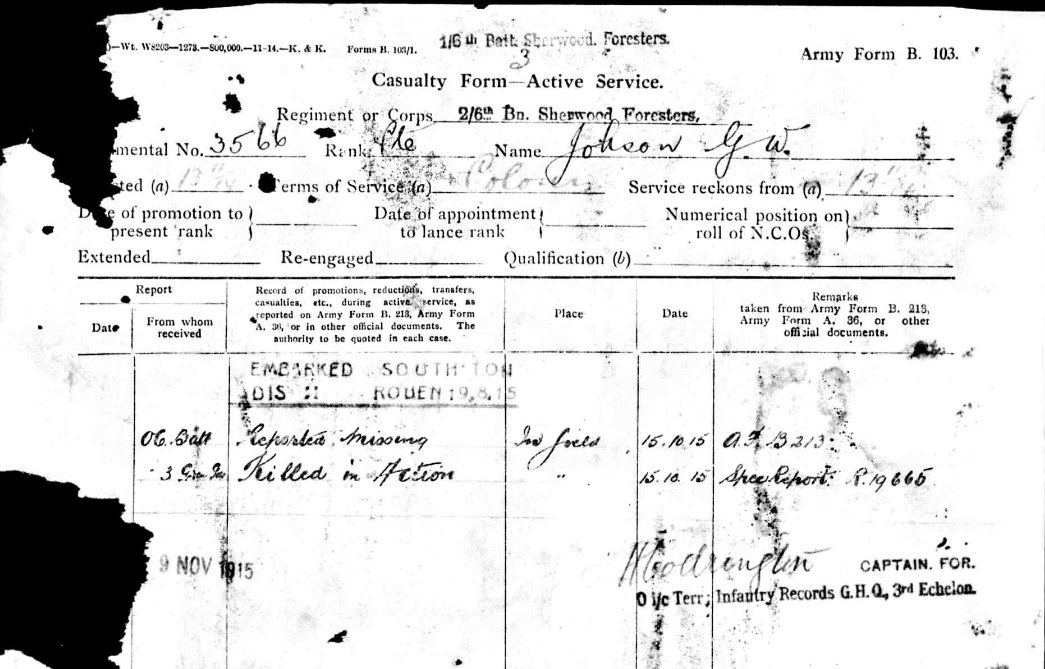 )—Wt. W8203—1273.—800,000.—11-14.—K. & K. Forms B. 103/1.
1/6th Batt. Sherwood. Foresters.
3
Army Form B. 103.
Casualty Form—Active Service.
Regiment or Corps 2/6th Bn. Sherwood Foresters,
mental No. 3566 Rank Pte Name Johson G. W.
ted (a) Terms of Service (a) Service reckons from (a)
Date of promotion to present rank
Date of appointment to lance rank
Numerical position on roll of N.C.Os
Extended Re-engaged Qualification (b)
Report
Date
From whom received
Record of promotions, reductions, transfers,
casualties, etc., during active service, as
reported on Army Form B. 213, Army Form
A. 36, or in other official documents. The
authority to be quoted in each case.
Place
Date
Remarks
taken from Army Form B. 213,
Army Form A. 36, or other
official documents.
EMBARKED SOUTH'TON
DIS ROUEN 19.8.15
OC. Batt Reported Missing In Field 15.10.15 A.F. B 213
3 Killed in Action " 15.10.15 Spec Report. R. 19665
9 NOV 1915
CAPTAIN. FOR.
O i/c Terr; Infantry Records G.H.Q., 3rd Echelon.